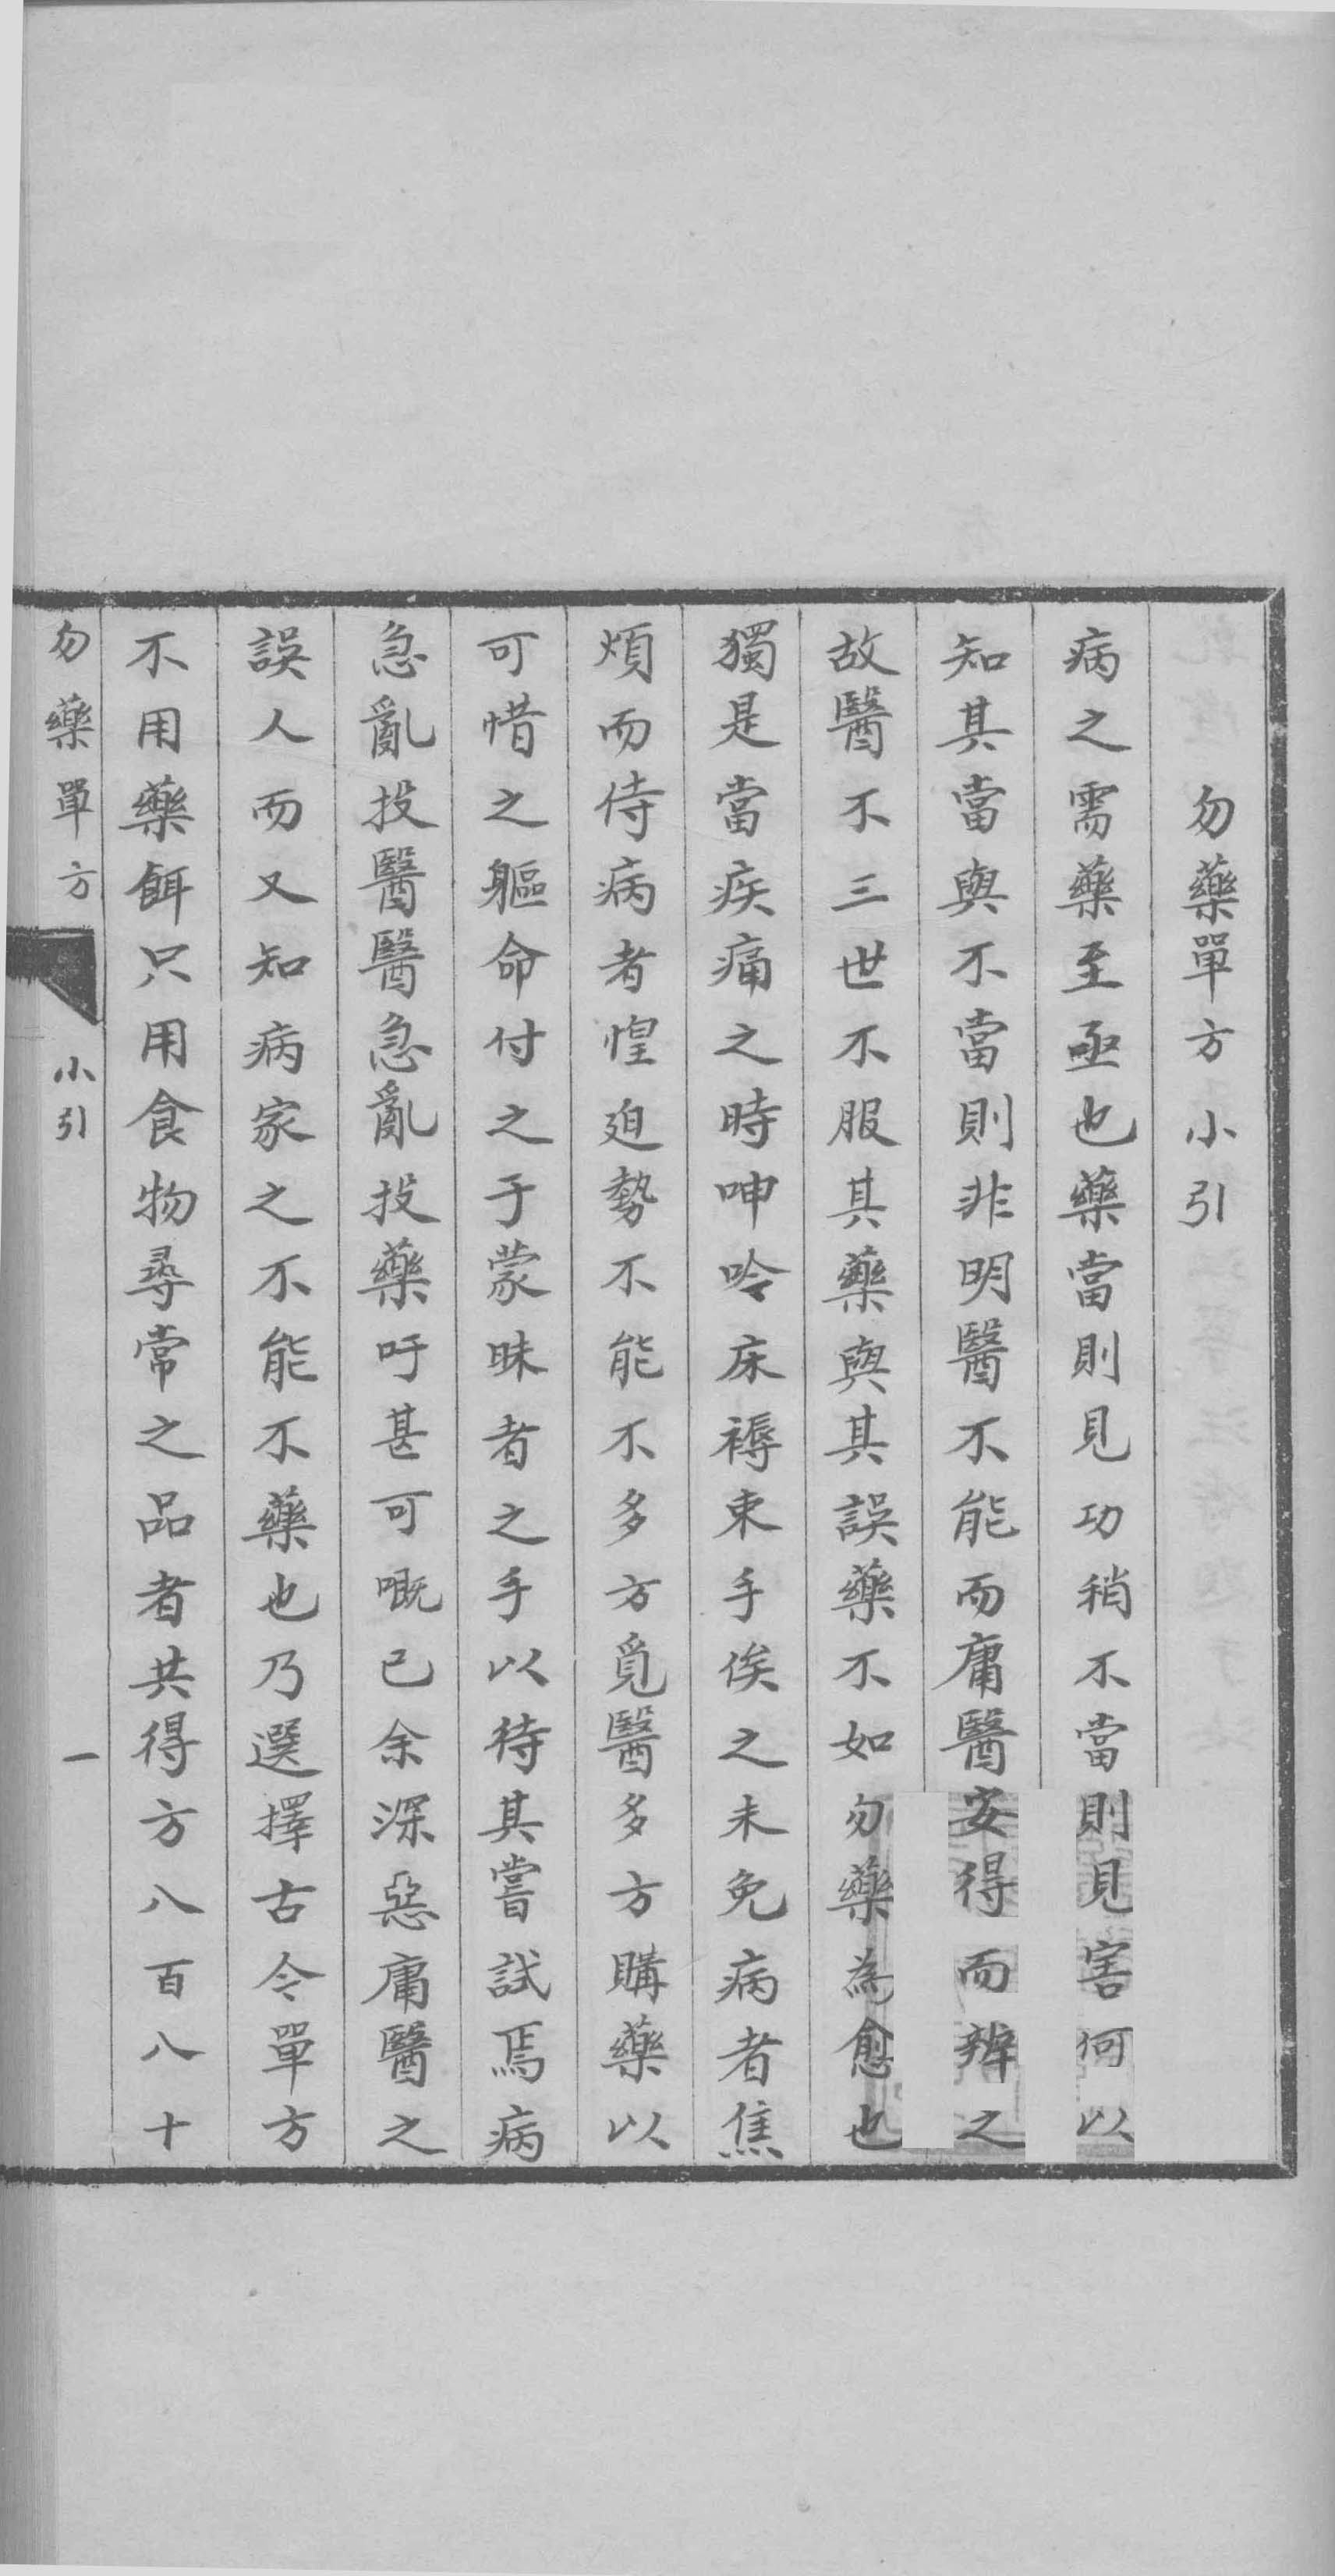 勿藥單方小引
病之需藥至亟也藥當則見功稍不當則見害何以
知其當與不當則非明醫不能而庸醫安得而辨之
故醫不三世不服其藥與其誤藥不如勿藥為愈也
獨是當疾痛之時呻吟床褥束手俟之未免病者焦
煩而侍病者惶迫勢不能不多方覓醫多方購藥以
可惜之軀命付之于蒙昧者之手以待其嘗試焉病
急亂投醫醫急亂投藥吁甚可嘅已余深惡庸醫之
誤人而又知病家之不能不藥也乃選擇古今單方
不用藥餌只用食物尋常之品者共得方八百八十
勿藥單方 小引 一